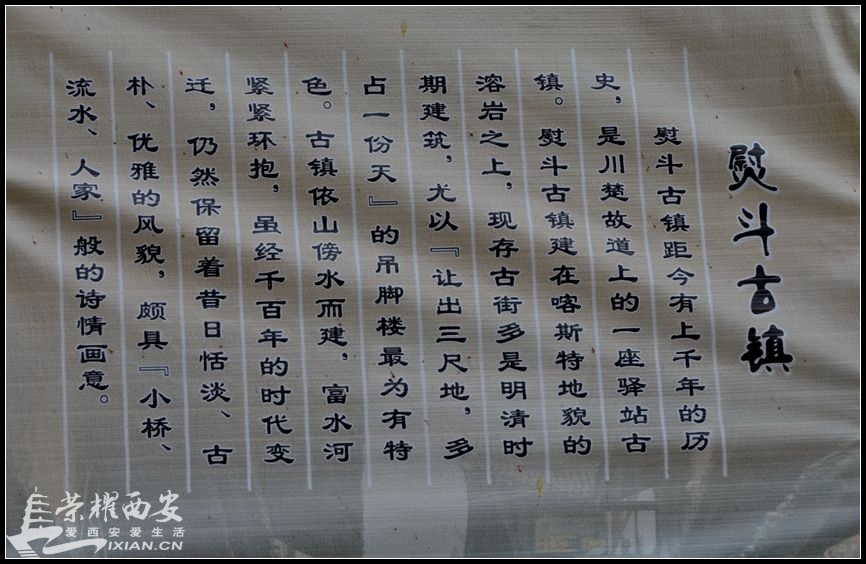 熨斗古镇
熨斗古镇距今有上千年的历
史，是川楚故道上的一座驿站古
镇。熨斗古镇建在喀斯特地貌的
溶岩之上，现存古街多是明清时
期建筑，尤以『让出三尺地，多
占一份天』的吊脚楼最为有特
色。古镇依山傍水而建，富水河
紧紧环抱，虽经千百年的时代变
迁，仍然保留着昔日恬淡、古
朴、优雅的风貌，颇具『小桥、
流水、人家』般的诗情画意。
荣耀西安
爱西安爱生活
IXIAN.CN